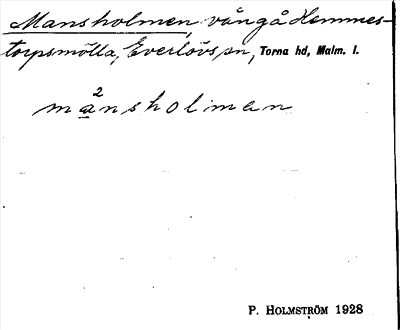 Mansholmen, vång å Hemmes-
torpsmölla, Everlövs sn, Torna hd, Malm. l.
2
mansholmen
P. HOLMSTRÖM 1928